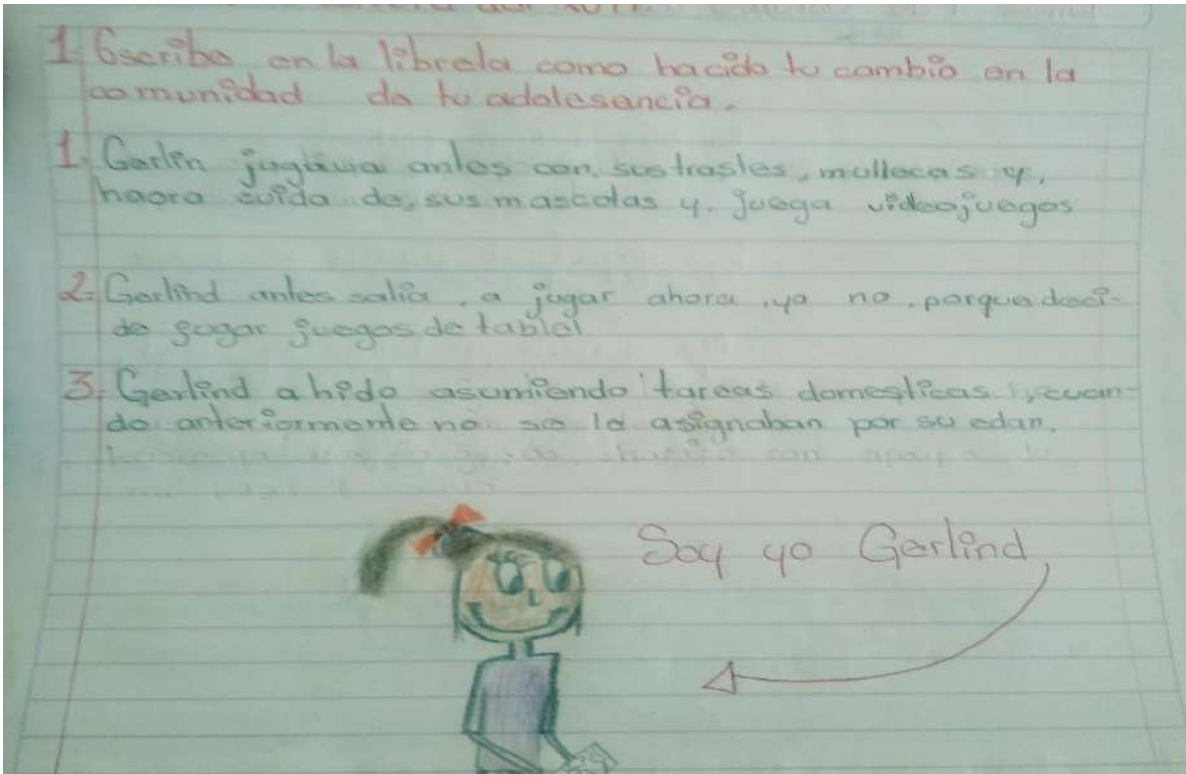 1. Escribe en la libreta como hacido tu cambio en la
comunidad de tu adolesencia.
1. Gerlin jugaua antes con sus trastes, mullecas y,
haora cuida de, sus mascotas y. juega videojuegos
2. Gerlind antes salia, a jugar ahora, ya no, porque deci-
de gugar guegos de tablet
3. Gerlind a hido asumiendo tareas domesticas, cuan-
do anteriormente no se le asignaban por su edan.
Soy yo Gerlind